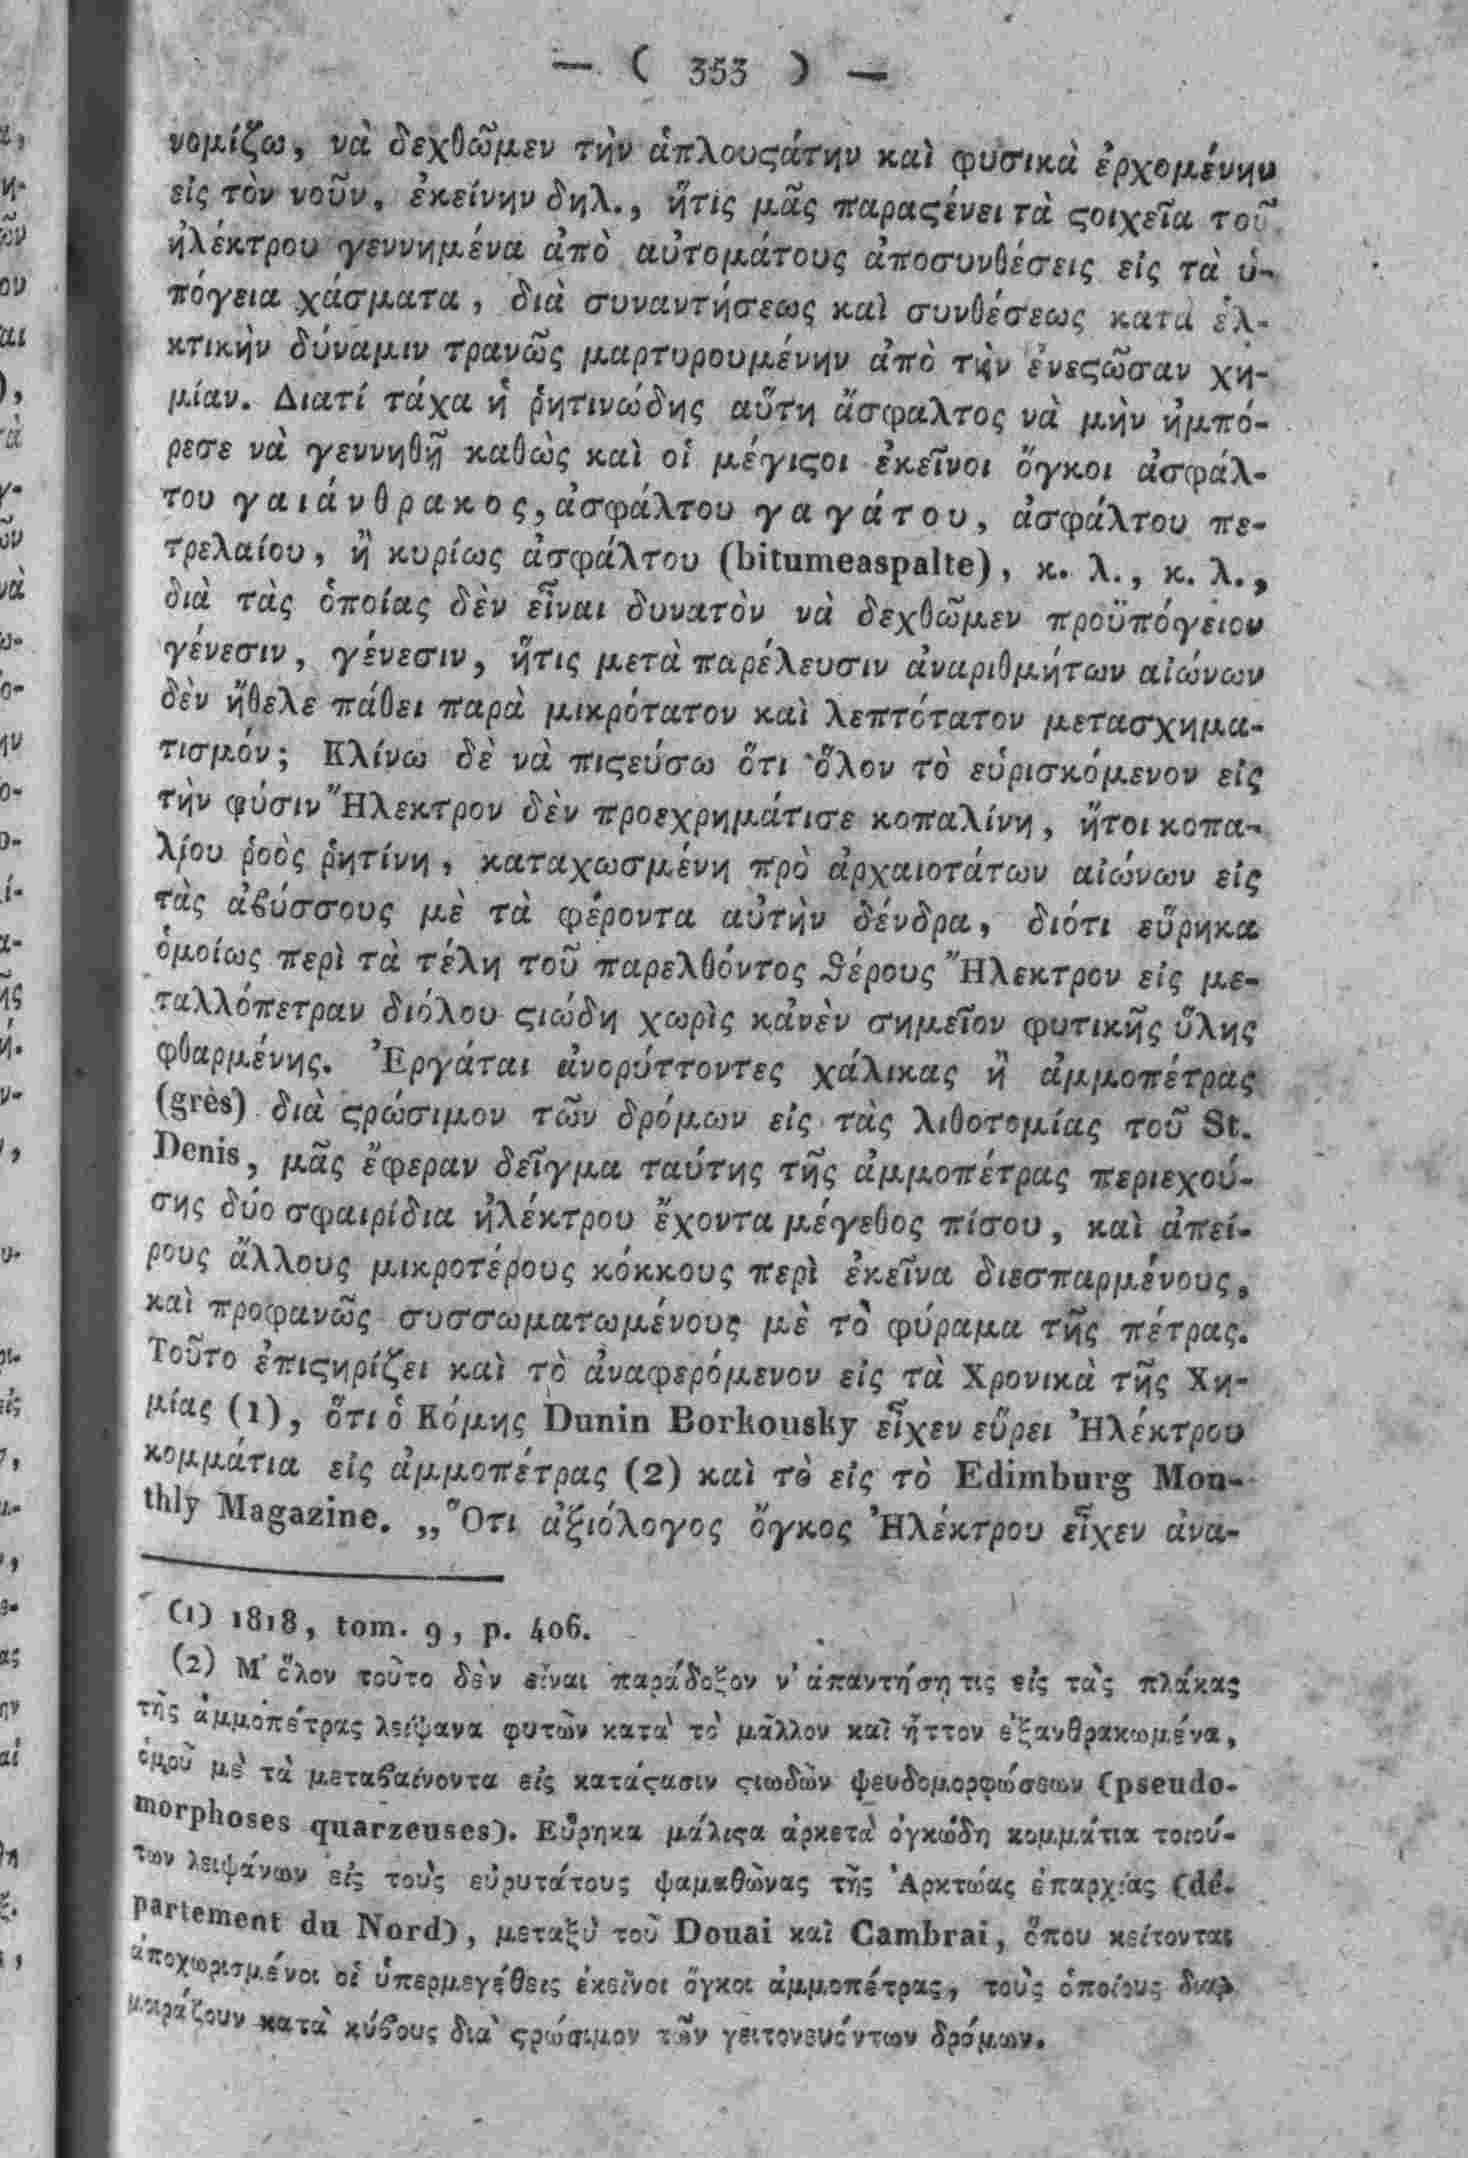 — ( 353 ) —
νομίζω, νὰ δεχθῶμεν τὴν ἁπλουϛάτην καὶ φυσικὰ ἐρχομένην
εἰς τὸν νοῦν, ἐκείνην δηλ., ἥτις μᾶς παραϛένει τὰ ϛοιχεῖα τοῦ
ἠλέκτρου γεννημένα ἀπὸ αὐτομάτους ἀποσυνθέσεις εἰς τὰ ὑ-
πόγεια χάσματα, διὰ συναντήσεως καὶ συνθέσεως κατὰ ἑλ-
κτικὴν δύναμιν τρανῶς μαρτυρουμένην ἀπὸ τὴν ἐνεϛῶσαν χη-
μίαν. Διατί τάχα ἡ ῥητινώδης αὕτη ἄσφαλτος νὰ μὴν ἠμπό-
ρεσε νὰ γεννηθῇ καθὼς καὶ οἱ μέγιϛοι ἐκεῖνοι ὄγκοι ἀσφάλ-
του γαιάνθρακος, ἀσφάλτου γαγάτου, ἀσφάλτου πε-
τρελαίου, ἢ κυρίως ἀσφάλτου (bitumeaspalte), κ. λ., κ. λ.,
διὰ τὰς ὁποίας δὲν εἶναι δυνατὸν νὰ δεχθῶμεν προϋπόγειον
γένεσιν, γένεσιν, ἥτις μετὰ παρέλευσιν ἀναριθμήτων αἰώνων
δὲν ἤθελε πάθει παρὰ μικρότατον καὶ λεπτότατον μετασχημα-
τισμόν; Κλίνω δὲ νὰ πιϛεύσω ὅτι ὅλον τὸ εὑρισκόμενον εἰς
τὴν φύσιν Ἤλεκτρον δὲν προεχρημάτισε κοπαλίνη, ἤτοι κοπα-
λίου ῥοὸς ῥητίνη, καταχωσμένη πρὸ ἀρχαιοτάτων αἰώνων εἰς
τὰς ἀβύσσους μὲ τὰ φέροντα αὐτὴν δένδρα, διότι εὕρηκα
ὁμοίως περὶ τὰ τέλη τοῦ παρελθόντος θέρους Ἤλεκτρον εἰς με-
ταλλόπετραν διόλου ϛιώδη χωρὶς κἀνὲν σημεῖον φυτικῆς ὕλης
φθαρμένης. Ἐργάται ἀνορύττοντες χάλικας ἢ ἀμμοπέτρας
(grès) διὰ ϛρώσιμον τῶν δρόμων εἰς τὰς λιθοτομίας τοῦ St.
Denis, μᾶς ἔφεραν δεῖγμα ταύτης τῆς ἀμμοπέτρας περιεχού-
σης δύο σφαιρίδια ἠλέκτρου ἔχοντα μέγεθος πίσου, καὶ ἀπεί-
ρους ἄλλους μικροτέρους κόκκους περὶ ἐκεῖνα διεσπαρμένους,
καὶ προφανῶς συσσωματωμένους μὲ τὸ φύραμα τῆς πέτρας.
Τοῦτο ἐπιϛηρίζει καὶ τὸ ἀναφερόμενον εἰς τὰ Χρονικὰ τῆς Χη-
μίας (1), ὅτι ὁ Κόμης Dunin Borkousky εἶχεν εὕρει Ἠλέκτρου
κομμάτια εἰς ἀμμοπέτρας (2) καὶ τὸ εἰς τὸ Edimburg Mon-
thly Magazine. „Ὅτι ἀξιόλογος ὄγκος Ἠλέκτρου εἶχεν ἀνα-
(1) 1818, tom. 9, p. 406.
(2) Μ' ὅλον τοῦτο δὲν εἶναι παράδοξον ν' ἀπαντήσῃ τις εἰς τὰς πλάκας
τῆς ἀμμοπέτρας λείψανα φυτῶν κατὰ τὸ μᾶλλον καὶ ἧττον ἐξανθρακωμένα,
ὁμοῦ μὲ τὰ μεταβαίνοντα εἰς κατάϛασιν ϛιωδῶν ψευδομορφώσεων (pseudo-
morphoses quarzeuses). Εὕρηκα μάλιϛα ἀρκετὰ ὀγκώδη κομμάτια τοιού-
των λειψάνων εἰς τοὺς εὐρυτάτους ψαμαθῶνας τῆς Ἀρκτώας ἐπαρχίας (dé-
partement du Nord), μεταξὺ τοῦ Douai καὶ Cambrai, ὅπου κείτονται
ἀποχωρισμένοι οἱ ὑπερμεγέθεις ἐκεῖνοι ὄγκοι ἀμμοπέτρας, τοὺς ὁποίους δια-
μοιράζουν κατὰ κύβους διὰ ϛρώσιμον τῶν γειτονευόντων δρόμων.